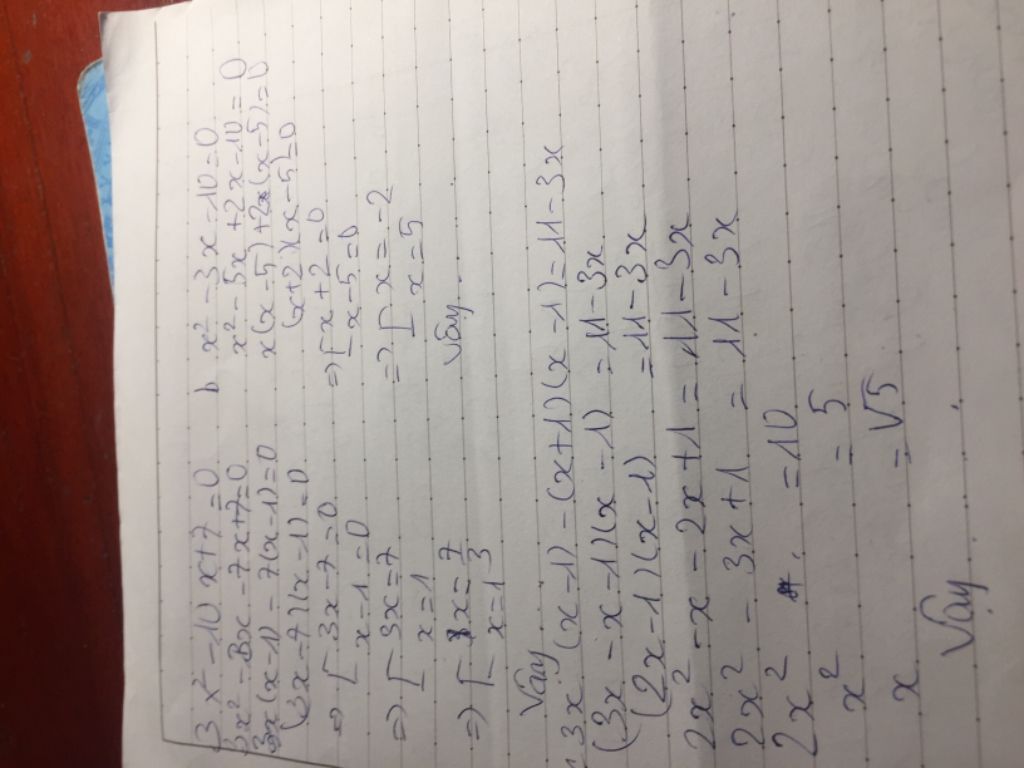 3x² - 10x + 7 = 0
3x² - 3x - 7x + 7 = 0
3x(x - 1) - 7(x - 1) = 0
(3x - 7)(x - 1) = 0
=> [ 3x - 7 = 0
x - 1 = 0
=> [ 3x = 7
x = 1
=> [ x = 7/3
x = 1
Vậy
b x² - 3x - 10 = 0
x² - 5x + 2x - 10 = 0
x(x - 5) + 2(x - 5) = 0
(x + 2)(x - 5) = 0
=> [ x + 2 = 0
x - 5 = 0
=> [ x = -2
x = 5
Vậy .
3x (x - 1) - (x + 1)(x - 1) = 11 - 3x
(3x - x - 1)(x - 1) = 11 - 3x
(2x - 1)(x - 1) = 11 - 3x
2x² - x - 2x + 1 = 11 - 3x
2x² - 3x + 1 = 11 - 3x
2x² = 10
x² = 5
x = √5
Vậy .